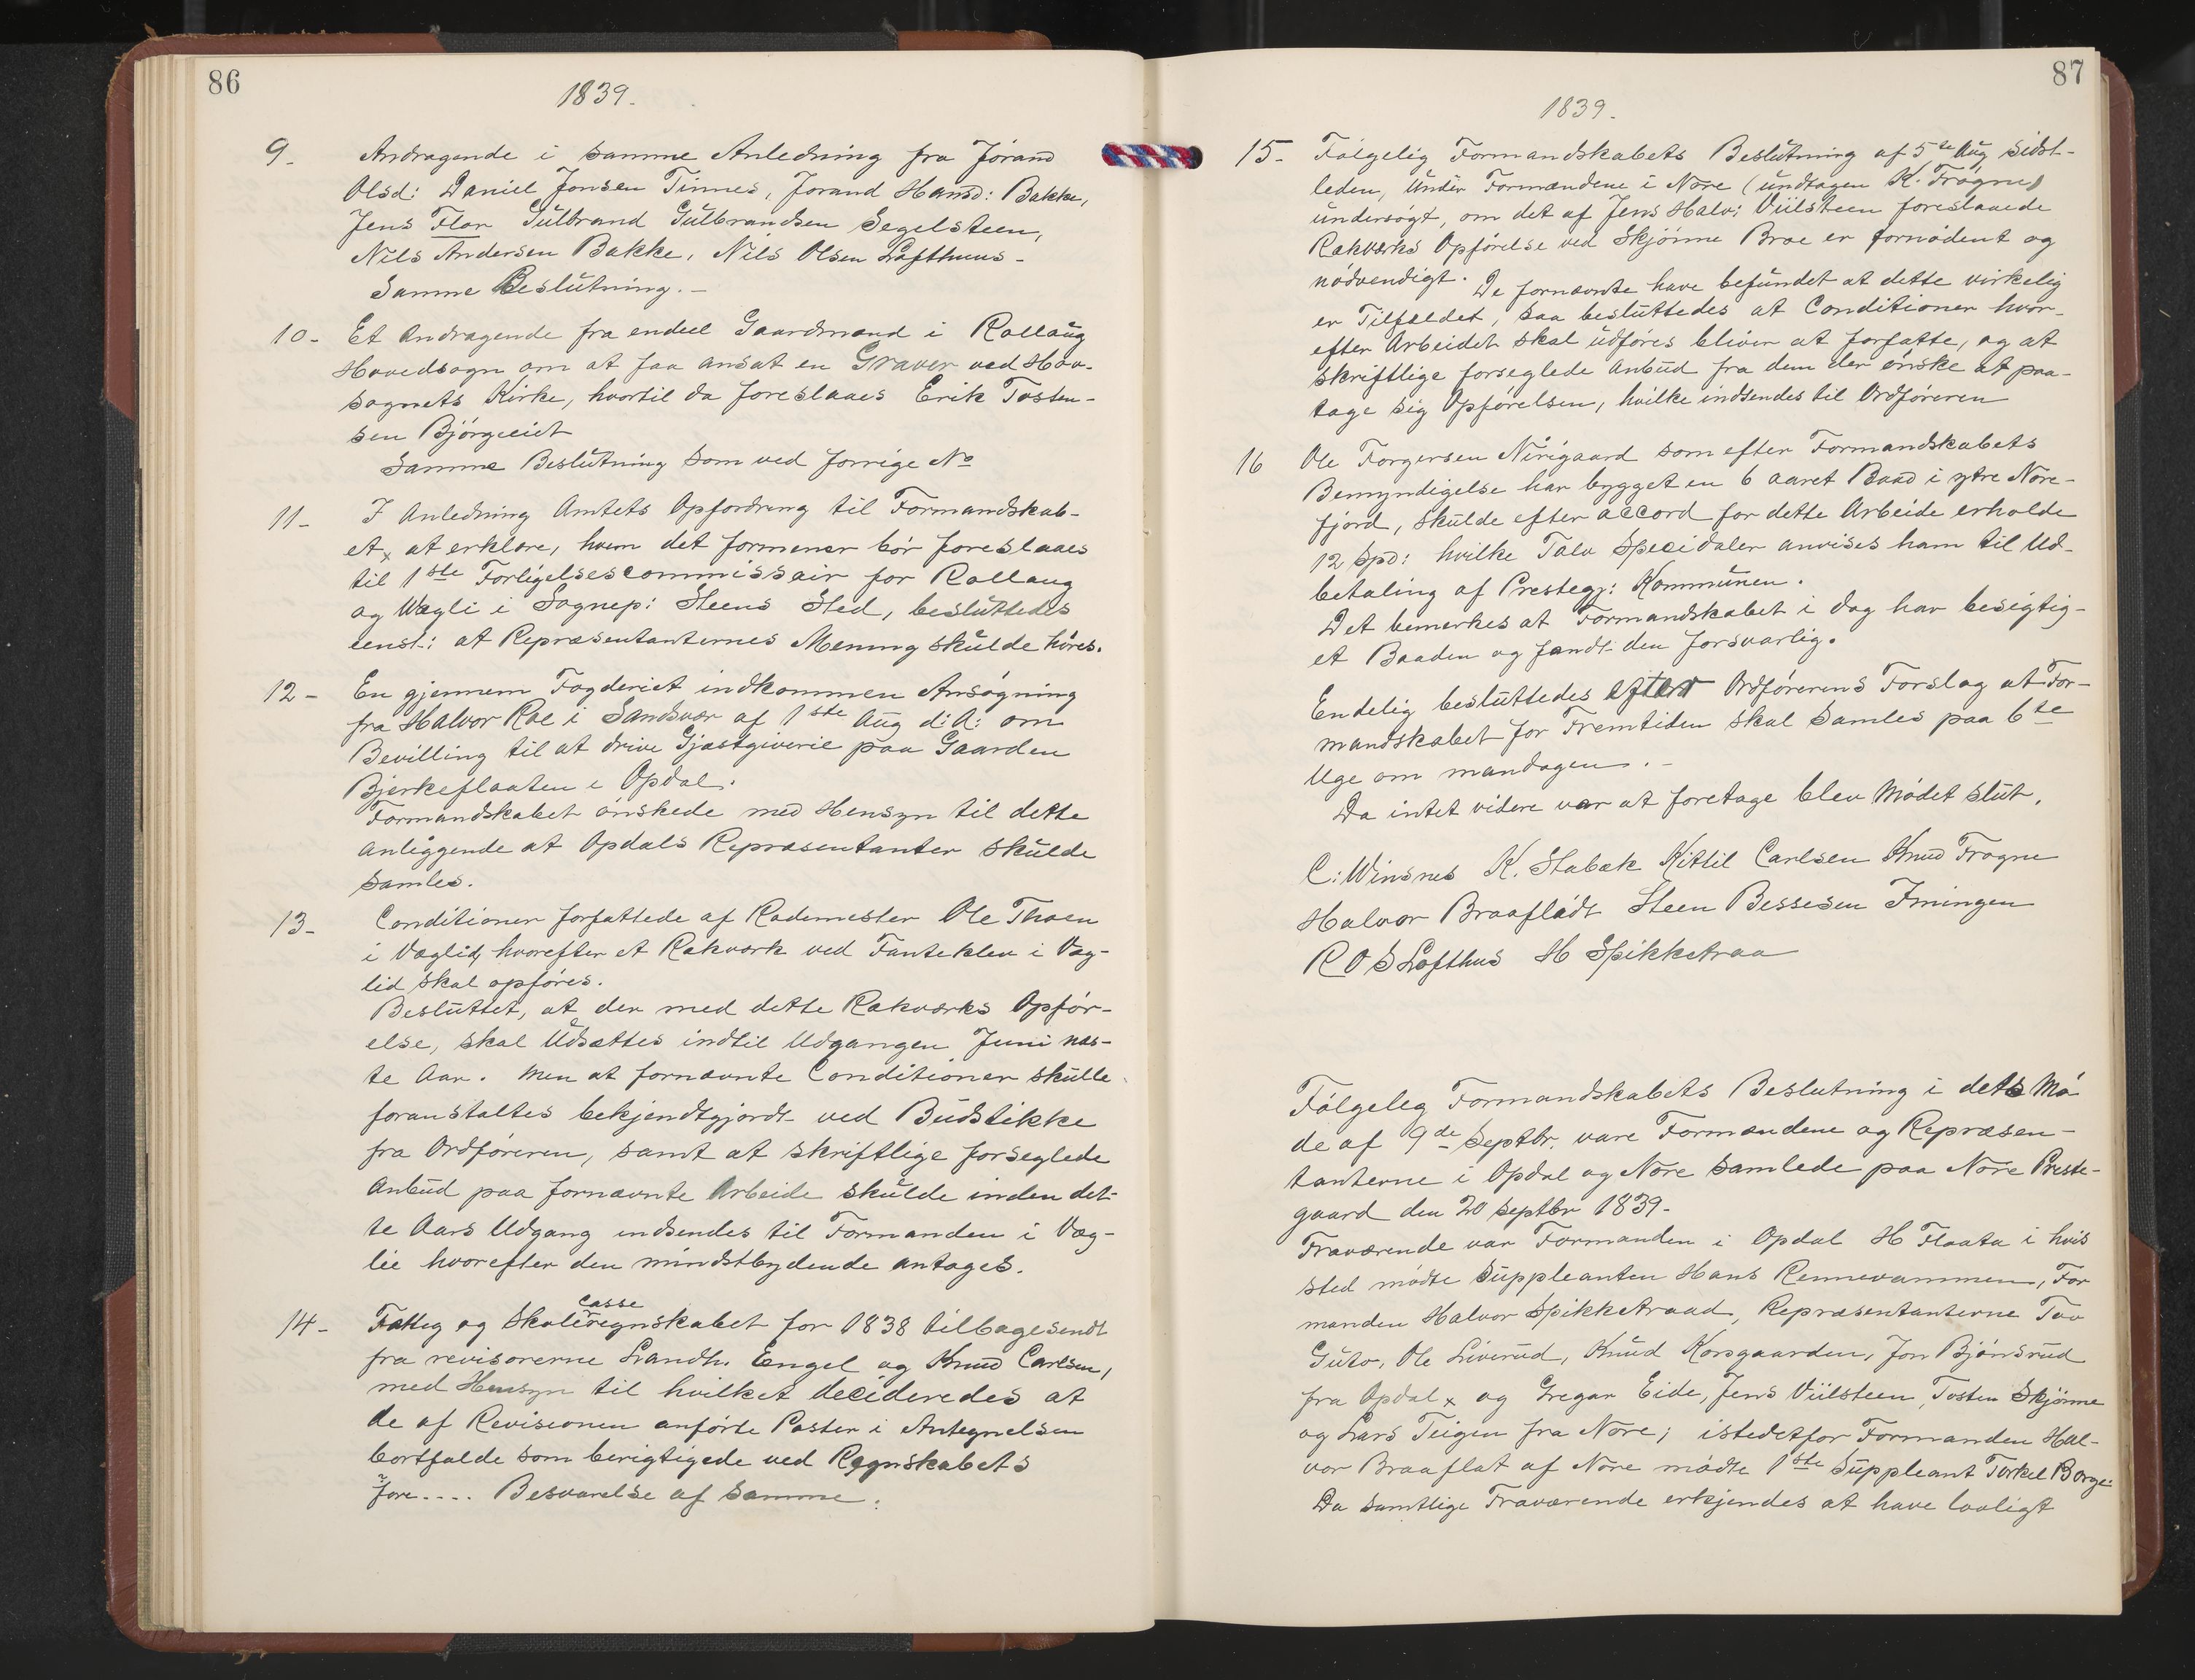 86
1839.
9. Andragende i samme Anledning fra Jórand
Olsd: Daniel Jonsen Tinnes, Jorand Hansd: Bakke,
Jens Flor Gulbrand Gulbrandsen Segelsteen,
Nils Andersen Bakke, Nils Olsen Lofthuus.
Samme Beslutning.–
10- Et Andragende fra endeel Gaardmænd i Rollaug
Hovedsogn om at faa ansat en Graver ved Hov-
sognets Kirke, hvortil da foreslaaes Erik Tosten-
sen Bjørgeeidt
Samme Beslutning som ved forrige No
11- I Anledning Amtets Opfordring til Formandskab-
et x at erklære, hvem det formener bör foreslaaes
til 1ste Forligelsescommissair for Rollaug
og Wægli i Sognep: Steens Sted, besluttedes
eenst: at Repræsentanternes Mening skulde höres.
12- En gjennem Fogderiet indkommen Ansøgning
fra Halvor Roe i Sandsvær af 1ste Aug d: A: om
Bevilling til at drive Gjæstgiverie paa Gaarden
Bjerkeflaaten i Opdal.
Formandskabet ønskede med Hensyn til dette
Anliggende at Opdals Repræsentanter skulde
samles.
13- Conditioner forfattede af Rodemester Ole Thoen
i Væglid, hvorefter et Rækværk ved Fanteklev i Væg-
lid skal opføres.
Besluttet, at der med dette Rækværks Opför-
else, skal Udsættes indtil Udgangen Juni næs-
te Aar. Men at fornævnte Conditioner skulle
foranstaltes bekjendtgjordt ved Budstikke
fra Ordføreren, samt at skriftlige forseglede
Anbud paa fornævnte Arbeide skulde inden det-
te Aars Udgang indsendes til Formanden i Væg-
lie hvorefter den mindstbydende antages.
14- Fattig og Skolecasseregnskabet for 1838 tilbagesendt
fra revisorerne Landh. Engel og Knud Carlsen,
med Hensyn til hvilket decideredes at
de af Revisionen anførte Poster i Antegnelsen
bortfalde som berigtigede ved Regnskabets
fore.... Besvarelse af samme.
87
1839.
15- Følgelig Formandskabets Beslutning af 5te Aug sidst-
leden, Under Formændene i Nore (undtagen K. Frógne)
undersøgt, om det af Jens Halv: Viilsteen foreslaaede
Rækværks Opførelse ved Skjønne Broe er fornødent og
nødvendigt. De fornævnte have befundet at dette virkelig
er Tilfældet, saa besluttedes at Conditioner hvor-
efter Arbeidet skal udføres bliver at forfatte, og at
skriftlige forseglede Anbud fra dem der ønske at paa-
tage sig Opførelsen, hvilke indsendes til Ordføreren
16 Ole Torgersen Nórigaard som efter Formandskabets
Bemyndigelse har bygget en 6 aaret Baad i ytre Nore-
fjord, skulde efter accord for dette Arbeide erholde
12 Spd: hvilke Tolv Specidaler anvises ham til Ud-
betaling af Prestegj: Kommunen.
Det bemerkes at Formandskabet i dag har besigtig-
et Baaden og fandt den forsvarlig.
Endelig besluttedes efter Ordførerens Forslag at For-
mandskabet for Fremtiden skal Samles paa 6te
Uge om mandagen.–
Da intet videre var at foretage blev Mødet slut.
C: Winsnes K. Stabæk Kittil Carlsen Knud Frogne
Halvor Braaflådt Steen Bessesen Imingen
R O S Lofthus H Spikketraa
Følgeleg Formandskabets Beslutning i dets Mó
de af 9de Septbr. vare Formændene og Repræsen-
tanterne i Opdal og Nore samlede paa Nore Preste-
gaard den 20 septbr 1839-
Fraværende var Formanden i Opdal H Flaata i hvis
sted mødte Suppleanten Hans Rennevammen, For
manden Halvor Spikketraad, Repræsentanterne Tov
Guto, Ole Liverud, Knud Korsgaarden, Jon Bjønsrud
fra Opdal x og Gregar Eide, Jens Viilsteen, Tosten Skjønne
og Lars Teigen fra Nore; istedetfor Formanden Hal-
vor Braaflat af Nore mødte 1ste Suppleant Torkel Borge.
Da samtlige Fraværende erkjendes at have lovligt